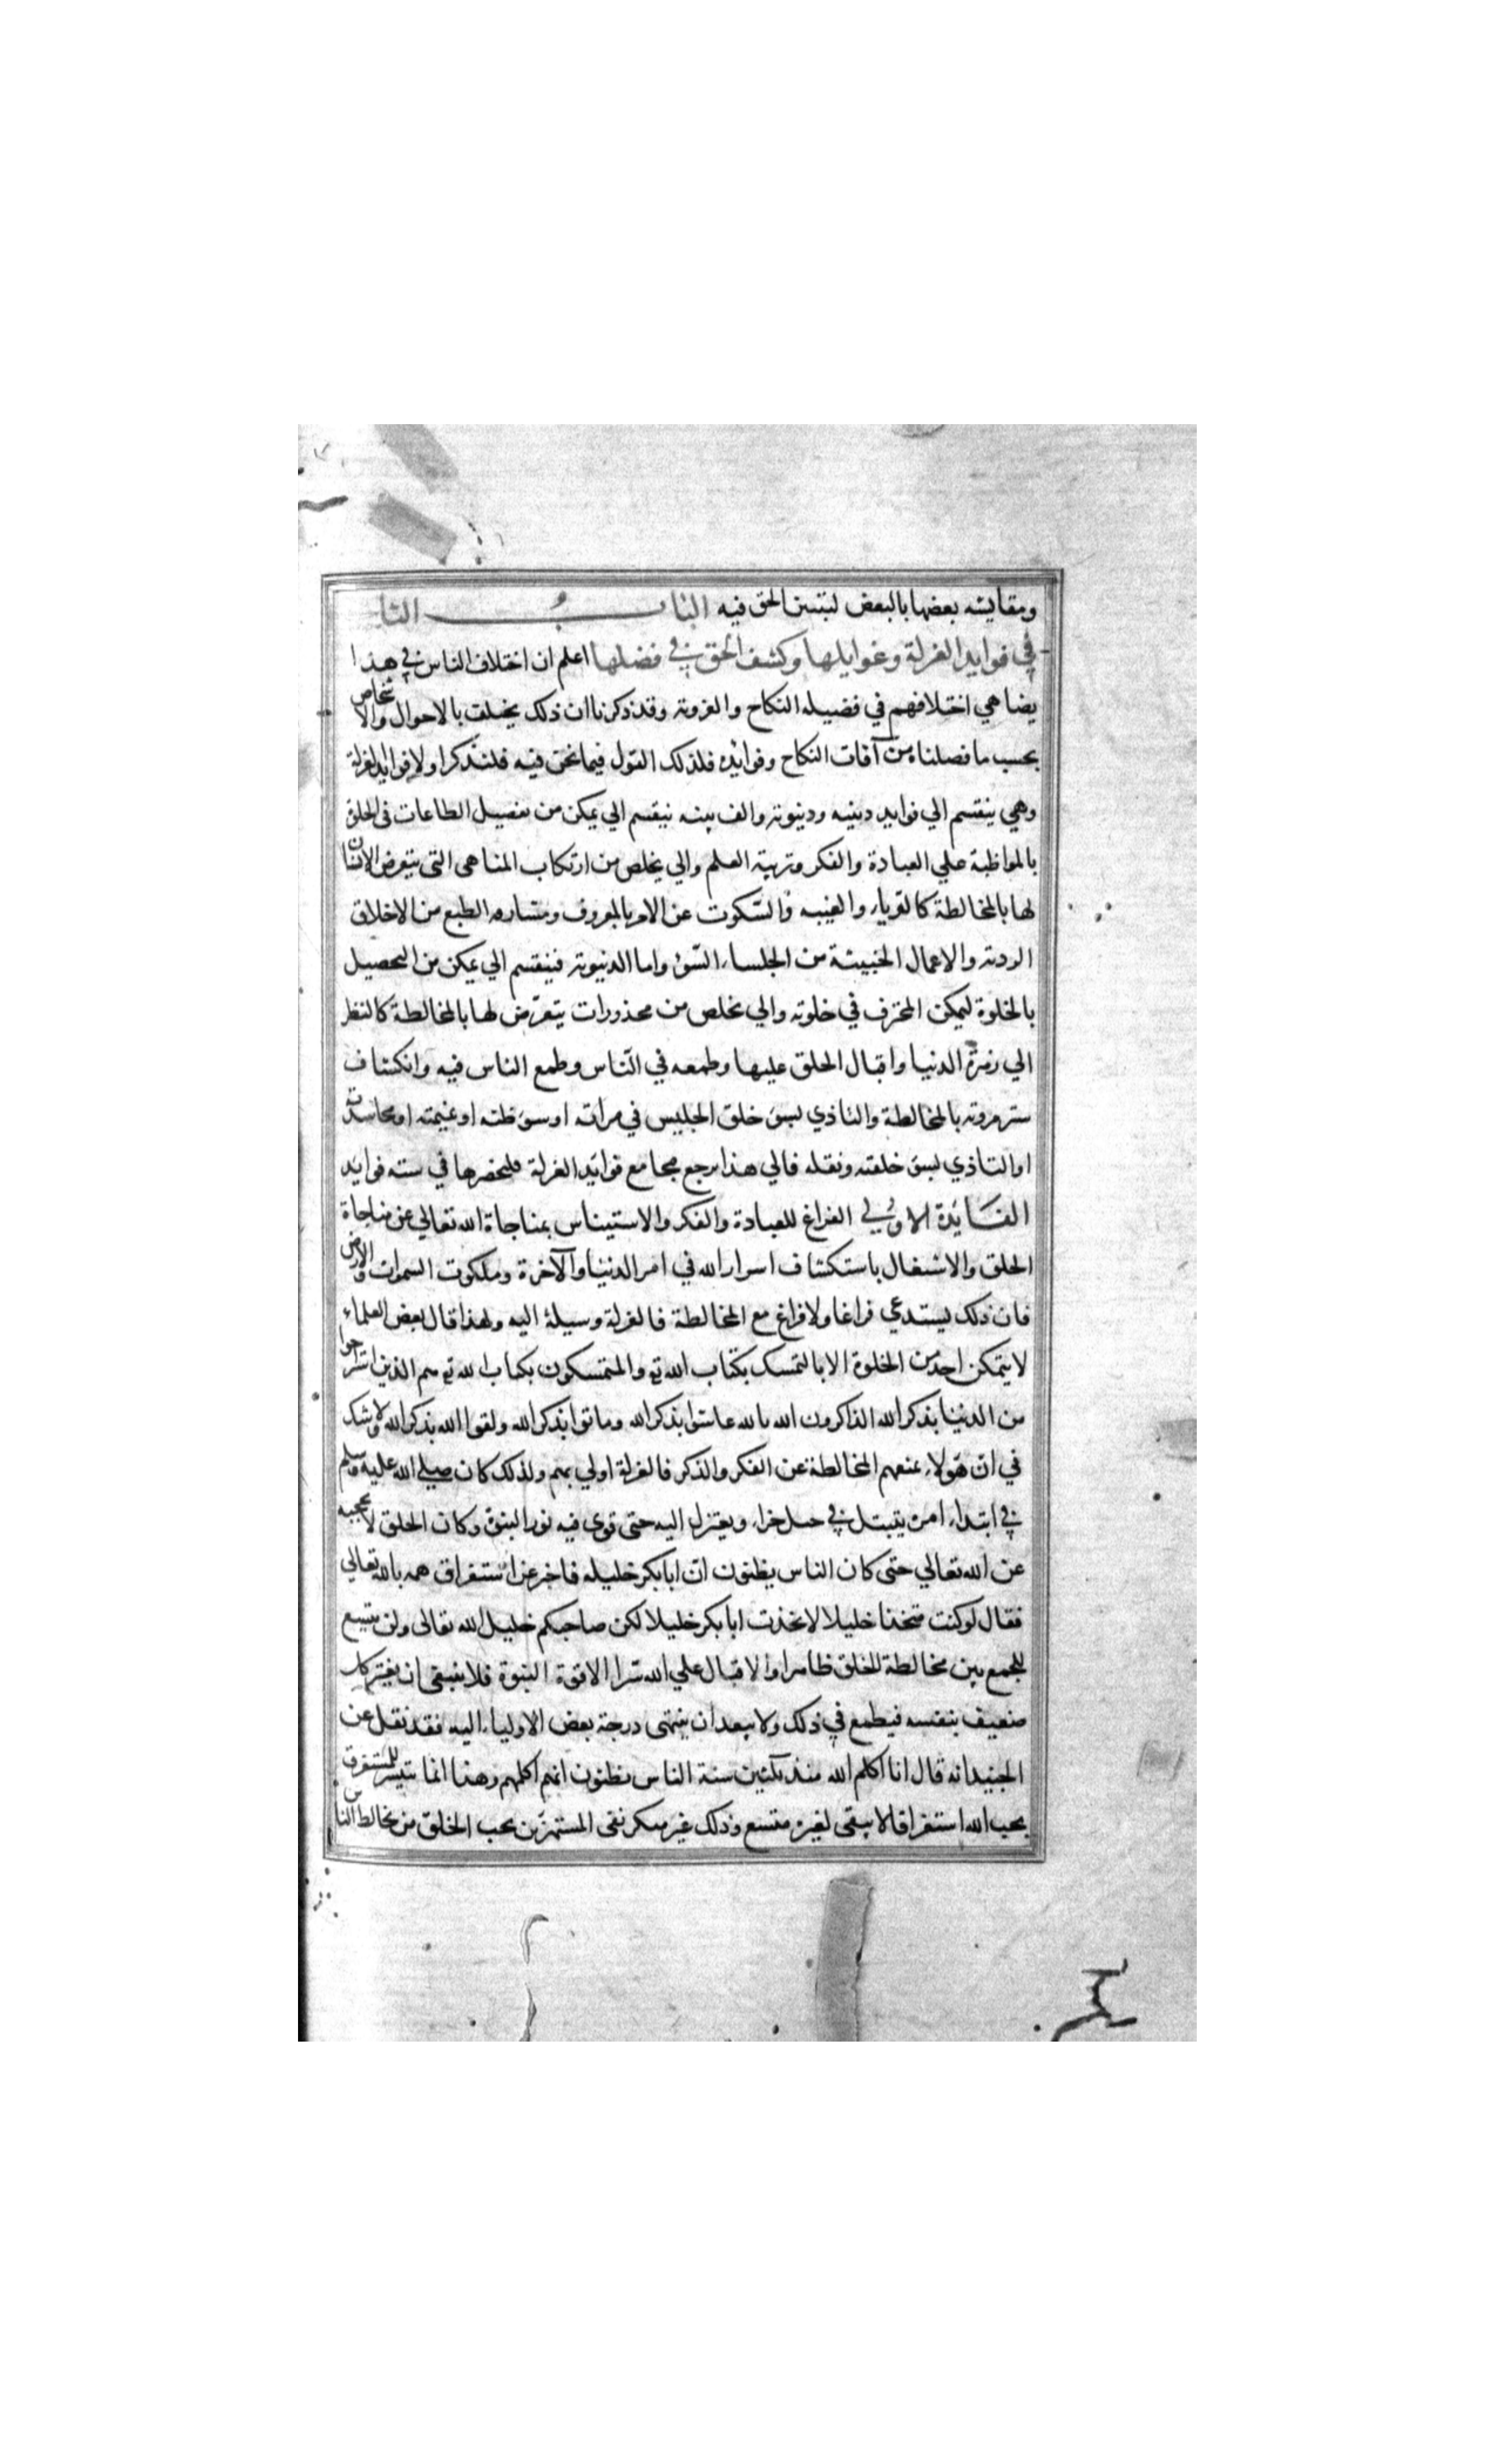 ومقايسه بعضها بالبعض ليتبين الحق فيه الباب الثا
في فوايد العزلة وغوايلها وكشف الحق في فضلها اعلم ان اختلاف الناس في هذا
يضاهي اختلافهم في فضيله النكاح والعزوبة وقد ذكرنا ان ذلك يختلف بالاحوال والاشخاص
بحسب ما فصلناه من آفات النكاح وفوايده فلذلك القول فيما نحن فيه فلنذكر اولا فوايد العزلة
وهي ينقسم الي فوايد دينيه ودنيوية والدينيه ينقسم الي يمكن من تحصيل الطاعات في الخلق
بالمواظبة علي العبادة والفكر وتربية العلم والي يخلص من ارتكاب المناهي التي يتعرض الانسان
لها بالمخالطة كالريا والغيبه والسكوت عن الامر بالمعروف ومسارقه الطبع من الاخلاق
الردية والاعمال الخبيثة من الجلساء السوء واما الدنيوية فينقسم الي يمكن من التحصيل
بالخلوة ليمكن المحترف في خلوته والي يخلص من محذورات يتعرض لها بالمخالطة كالنظر
الي زهرة الدنيا واقبال الخلق عليها وطمعه في الناس وطمع الناس فيه وانكشاف
ستر مروته بالمخالطة والتاذي بسوء خلق الجليس في مراته او سوء ظنه او غيمته او محاسدته
او التاذي بسوء خلقته وثقله فالي هذا يرجع مجامع فوايد العزلة فلنحضرها في ستة فوايد
الفايدة الاولي الفراغ للعبادة والفكر والاستيناس بمناجاة الله تعالي عن مناجاة
الخلق والاشتغال باستكشاف اسرار الله في امر الدنيا والآخرة وملكوت السموات والارض
فان ذلك يستدعي فراغا ولا فراغ مع المخالطة فالعزلة وسيلة اليه ولهذا قال بعض العلماء
لا يتمكن احد من الخلوة الا بالتمسك بكتاب الله تع والمتمسكون بكتاب الله تع هم الذين استراحوا
من الدنيا بذكر الله الذاكرون الله بالله عاشوا بذكر الله وماتوا بذكر الله ولقوا الله بذكر الله ولا شك
في ان هولاء يمنعهم المخالطة عن الفكر والذكر فالعزلة اولي بهم ولذلك كان صلي الله عليه وسلم
في ابتداء امره يتبتل في جبل حراء ويعتزل اليه حتى قوى فيه نور النبوة وكان الخلق لا يحجبه
عن الله تعالي حتى كان الناس يظنون ان ابا بكر خليله فاخبر عن استغراق همه بالله تعالي
فقال لو كنت متخذا خليلا لاتخذت ابا بكر خليلا لكن صاحبكم خليل الله تعالى ولن يتسع
للجمع بين مخالطة الخلق ظاهرا والاقبال علي الله سرا الا قوة النبوة فلا ينبغي ان يغتر كل
ضعيف بنفسه فيطمع في ذلك ولا يبعد ان ينتهى درجة بعض الاولياء اليه فقد نقل عن
الجنيد انه قال انا اكلم الله منذ ثلثين سنة الناس يظنون انهم اكلمهم وهذا انما يتيسر للمستغرق
بحب الله استغراقا لا يبقى لغيره متسع وذلك غير منكر نفى المستهزين بحب الخلق من يخالط الناس